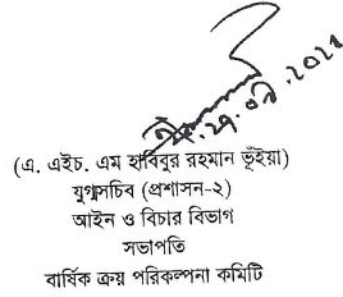 (এ. এইচ. এম হাবিবুর রহমান ভূঁইয়া)
যুগ্মসচিব (প্রশাসন-২)
আইন ও বিচার বিভাগ
সভাপতি
বার্ষিক ক্রয় পরিকল্পনা কমিটি